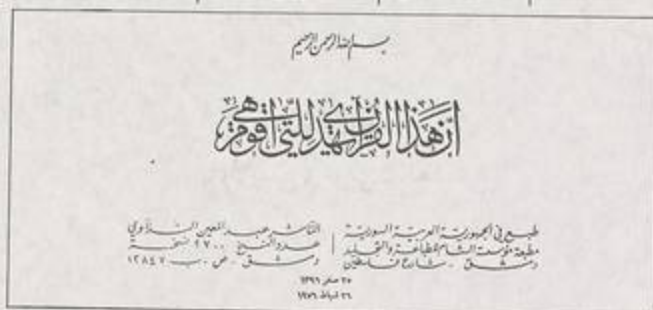 بسم الله الرحمن الرحيم
إن هذا القرآن يهدي للتي هي أقوم
طبع في الجمهورية العربية السورية
مطبعة مؤسسة الشام للطباعة والتجليد
دمشق - شارع فلسطين
الناشر عبد المعين
عدد النسخ ٢٧٠٠ نسخة
دمشق - ص . ب ١٢٨٤٧
٢٥ صفر ١٣٩٦
٢٦ شباط ١٩٧٦